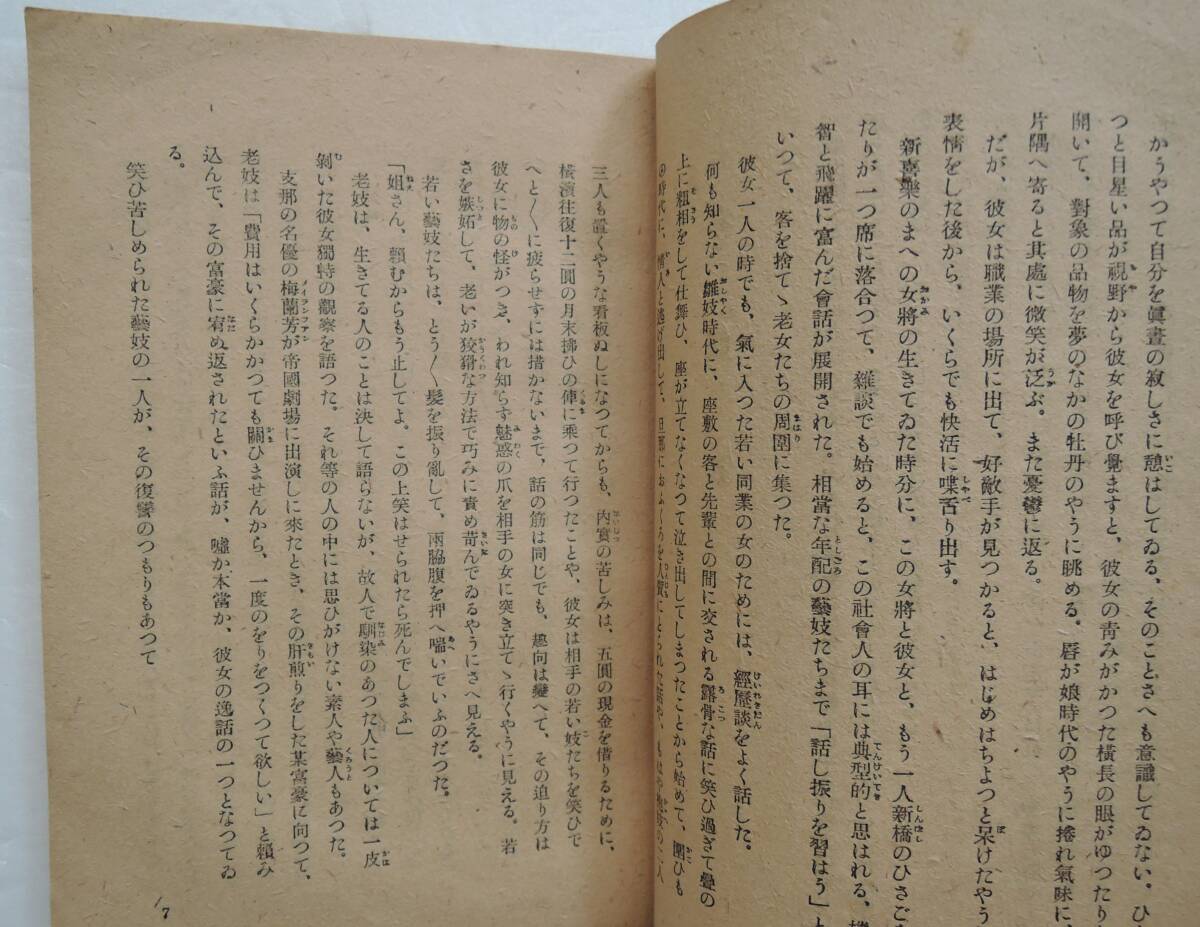 かうやつて自分を眞晝の寂しさに憩はしてゐる、そのことさへも意識してゐない。ひ
つと目星い品が視野から彼女を呼び覺ますと、彼女の青みがかつた横長の眼がゆつたり
開いて、對象の品物を夢のなかの牡丹のやうに眺める。唇が娘時代のやうに捲れ氣味に、
片隅へ寄ると其處に微笑が泛ぶ。また憂鬱に返る。
だが、彼女は職業の場所に出て、好敵手が見つかると、はじめはちよつと呆けたやう
表情をした後から、いくらでも快活に喋舌り出す。
新喜樂のまへの女將の生きてゐた時分に、この女將と彼女と、もう一人新橋のひさご
たりが一つ席に落合つて、雜談でも始めると、この社會人の耳には典型的と思はれる、
智と飛躍に富んだ會話が展開された。相當な年配の藝妓たちまで「話し振りを習はう」と
いつて、客を捨てゝ老女たちの周圍に集つた。
彼女一人の時でも、氣に入つた若い同業の女のためには、經歷談をよく話した。
何も知らない雛妓時代に、座敷の客と先輩との間に交される露骨な話に笑ひ過ぎて疊の
上に粗相をして仕舞ひ、座が立てなくなつて泣き出してしまつたことから始めて、圍ひも
の時代に、情人と逃げ出して、旦那におふくろを人質にとられた
三人も置くやうな看板ぬしになつてからも、内實の苦しみは、五圓の現金を借りるために、
横濱往復十二圓の月末拂ひの俥に乘つて行つたことや、彼女は相手の若い妓たちを笑ひで
へと〱に疲らせずには措かないまで、話の筋は同じでも、趣向は變へて、その迫り方は
彼女に物の怪がつき、われ知らず魅惑の爪を相手の女に突き立てゝ行くやうに見える。若
さを嫉妬して、老いが狡猾な方法で巧みに責め苛んでゐるやうにさへ見える。
若い藝妓たちは、とう〱髮を振り亂して、兩脇腹を押へ喘いでいふのだつた。
「姐さん、賴むからもう止してよ。この上笑はせられたら死んでしまふ」
老妓は、生きてる人のことは決して語らないが、故人で馴染のあつた人については一皮
剝いた彼女獨特の觀察を語つた。それ等の人の中には思ひがけない素人や藝人もあつた。
支那の名優の梅蘭芳が帝國劇場に出演しに來たとき、その肝煎りをした某富豪に向つて、
老妓は「費用はいくらかかつても關ひませんから、一度のをりをつくつて欲しい」と賴み
込んで、その富豪に宥め返されたといふ話が、嘘か本當か、彼女の逸話の一つとなつてゐ
る。
笑ひ苦しめられた藝妓の一人が、その復讐のつもりもあつて
7